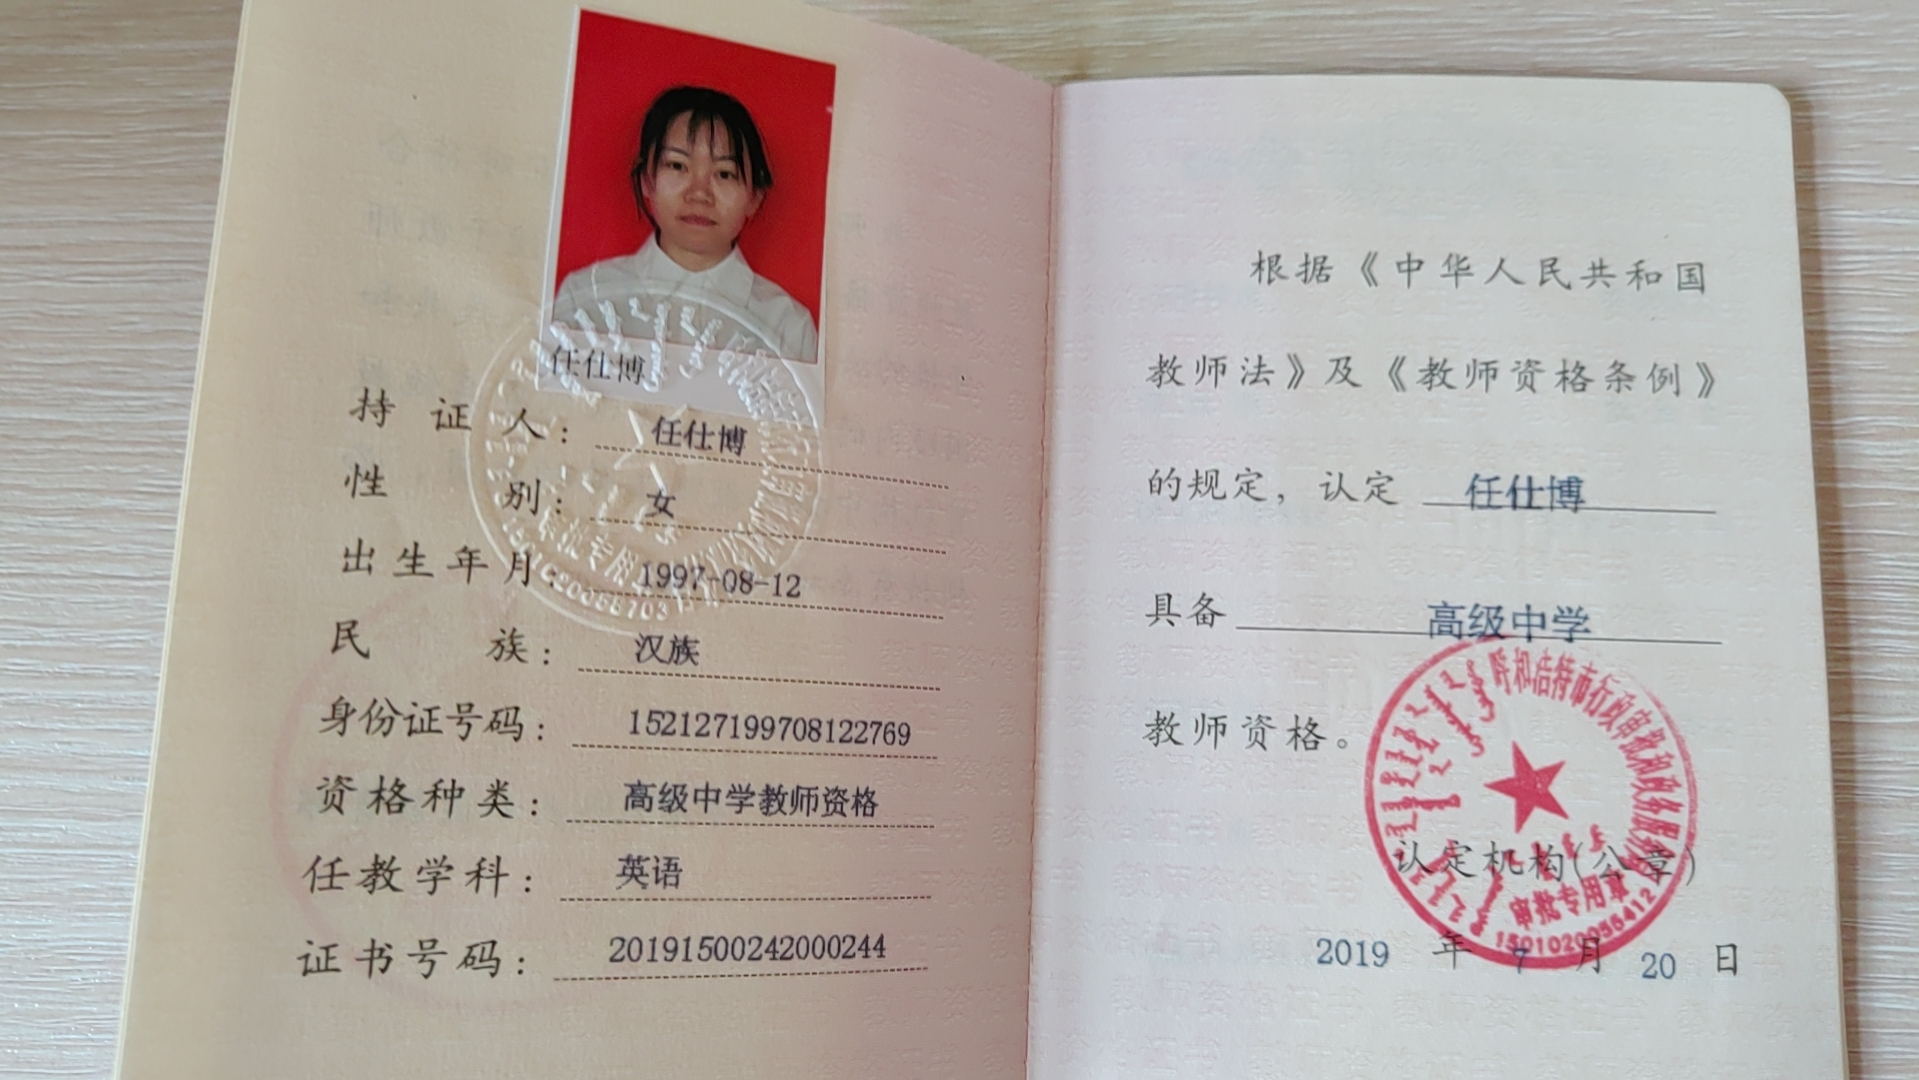 任仕博
持证人：任仕博
性别：女
出生年月：1997-08-12
民族：汉族
身份证号码：152127199708122769
资格种类：高级中学教师资格
任教学科：英语
证书号码：20191500242000244
根据《中华人民共和国
教师法》及《教师资格条例》
的规定，认定 任仕博
具备 高级中学
教师资格。
呼和浩特市行政审批和政务服务局
认定机构(公章)
审批专用章
2019 年 7 月 20 日